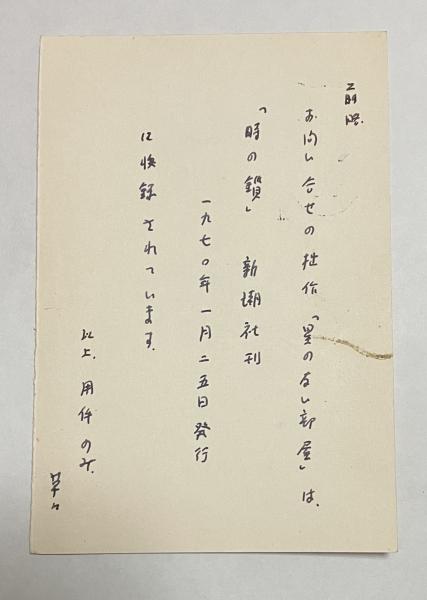 前略
お問い合せの拙作「星のない部屋」は、
「時の鎖」 新潮社刊
一九七〇年一月二五日発行
に收録されています。
以上、用件のみ、
草々